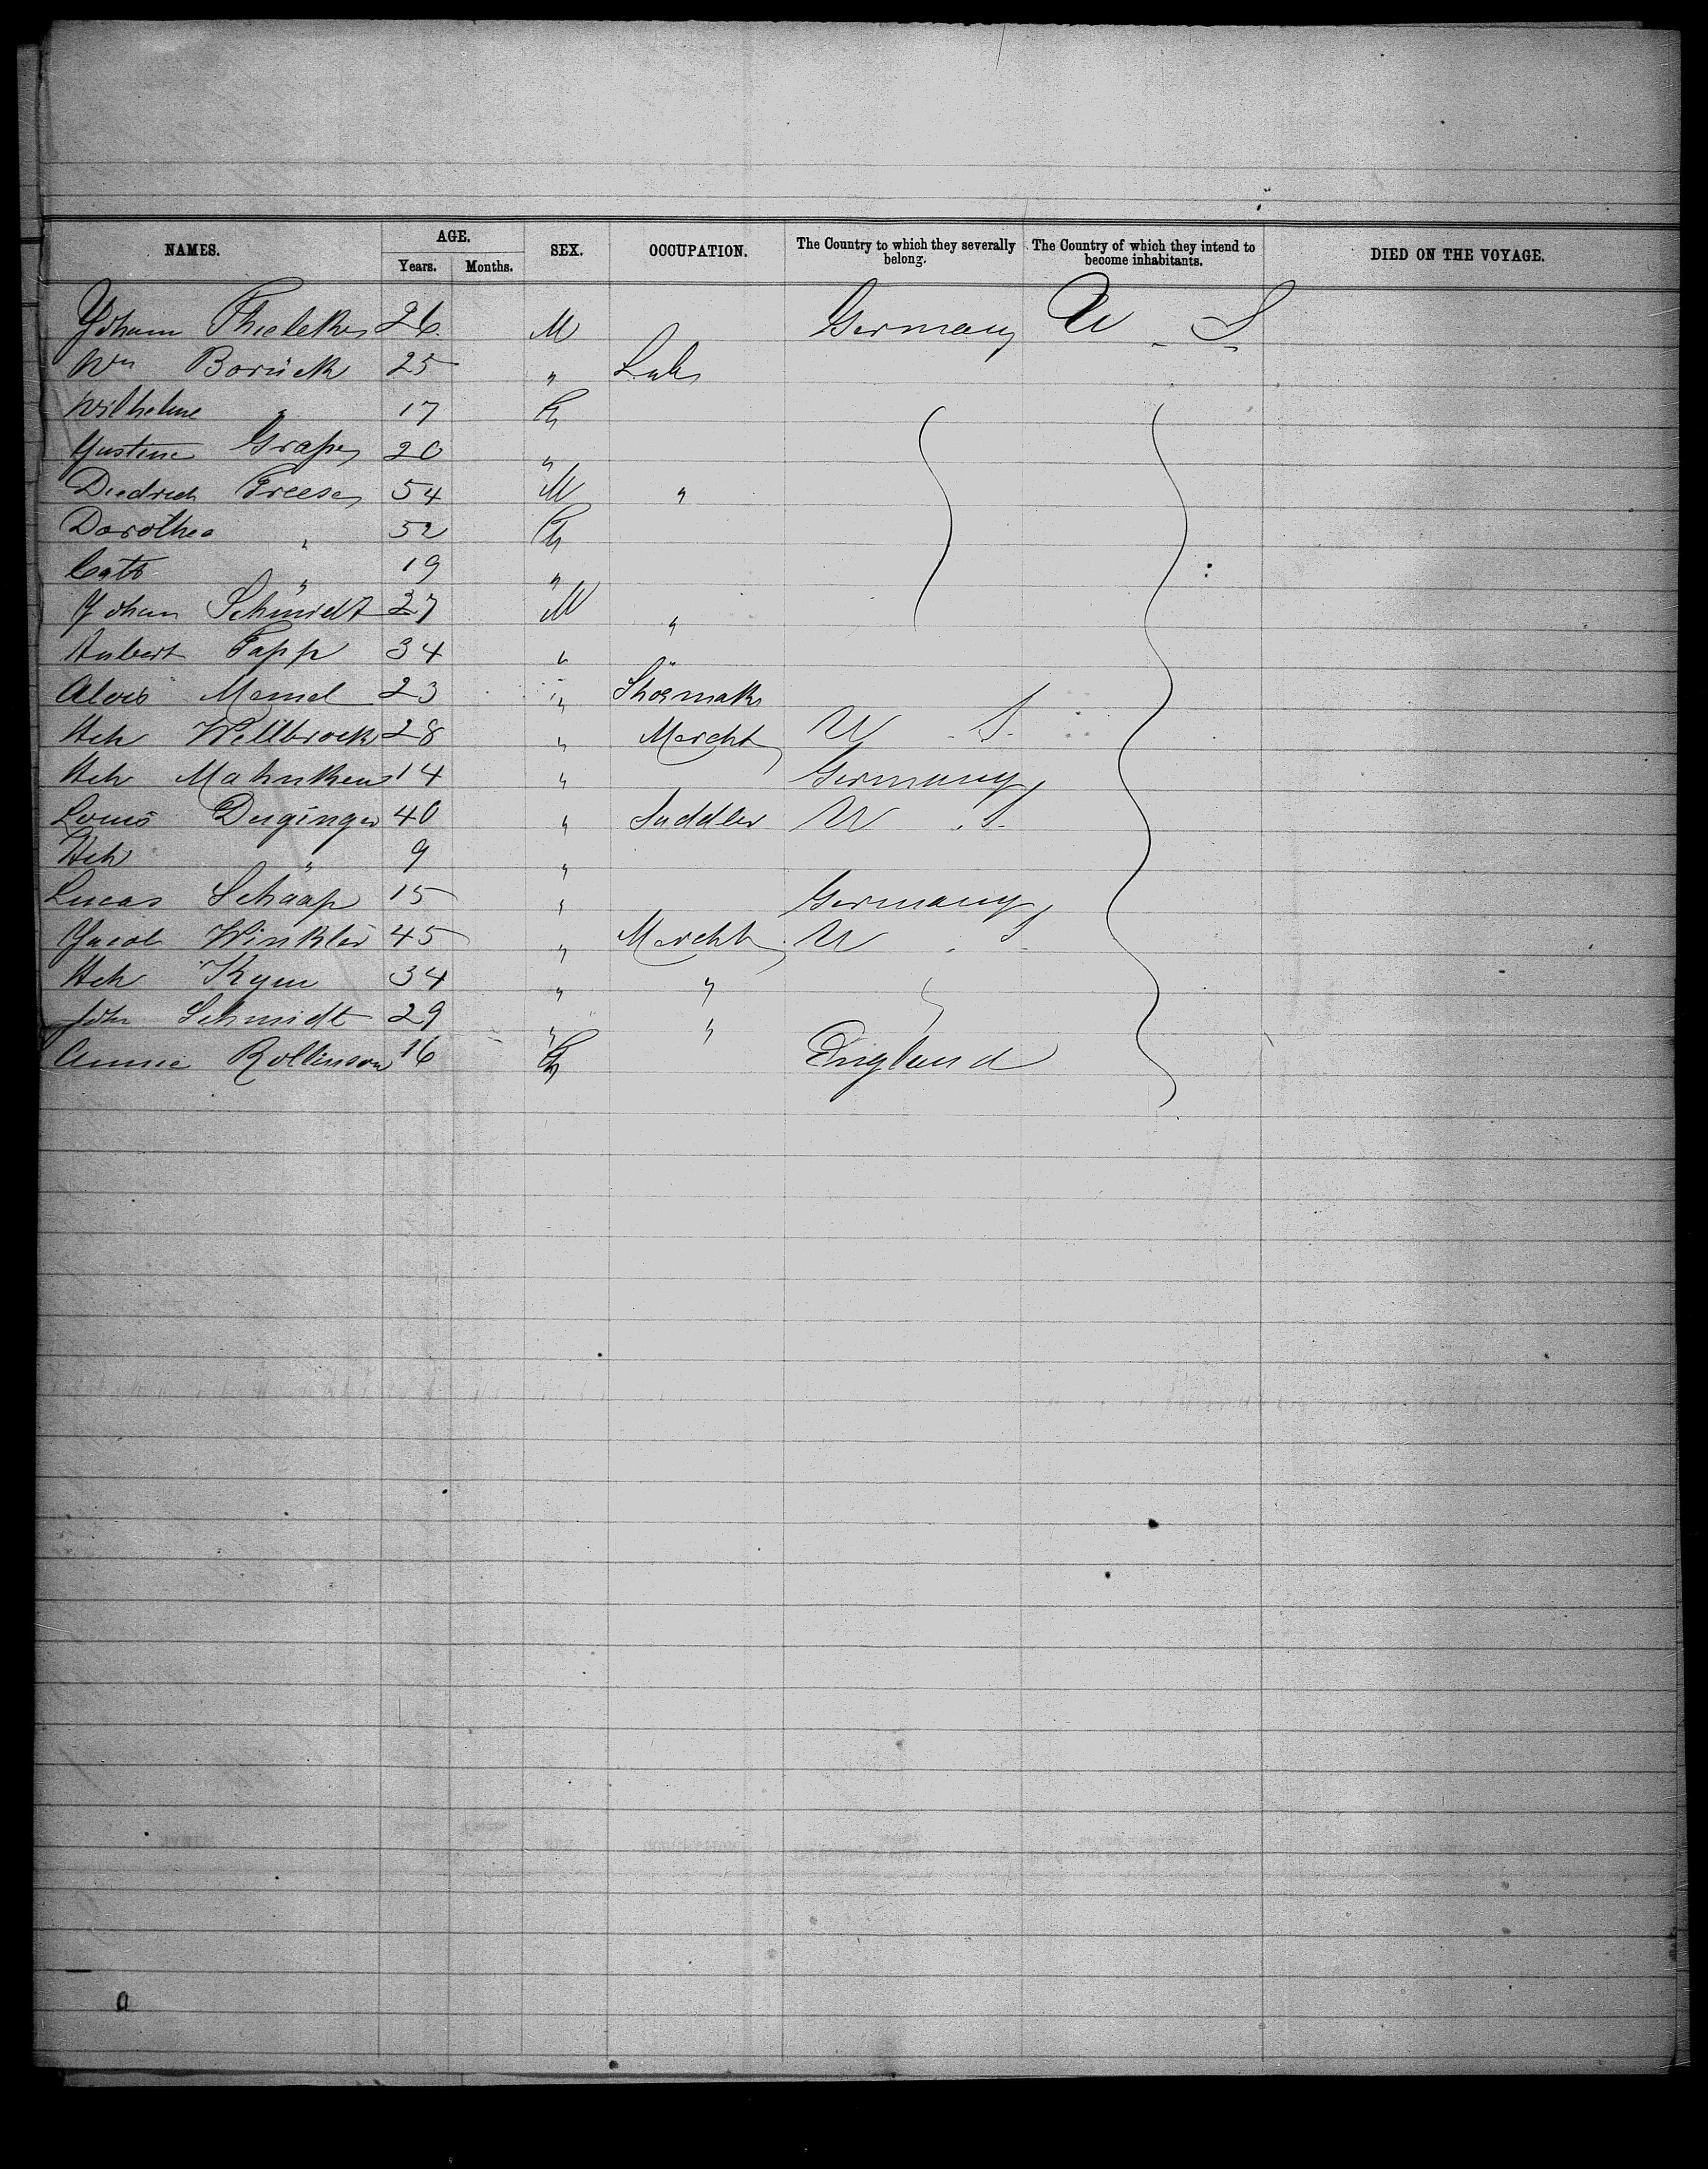 NAMES. AGE. SEX. OCCUPATION. The Country to which they severally belong. The Country of which they intend to become inhabitants. DIED ON THE VOYAGE.
Years. Months.
Johann 26. M Germany U.S.
Wm Borück 25 " Labr
Wilhelme " 17 F
Justine Grape 20 "
Diedrich Freese 54 M "
Dorothea " 52 F
Cath " 19 "
Johan Schmidt 27 M "
Hubert Papp 34 " "
Alois Memel 23 " Shoemakr
Hch Wellbrock 28 " Mercht U.S.
Hch Mahnken 14 " Germany
Louis 40 " Saddler U.S.
Hch " 9 "
Lucas Schaap 15 " Germany
Jacob Winkler 45 " Mercht U.S.
Hch Kyem 34 " "
John Schmidt 29 " "
Annie Rollinson 16 F England